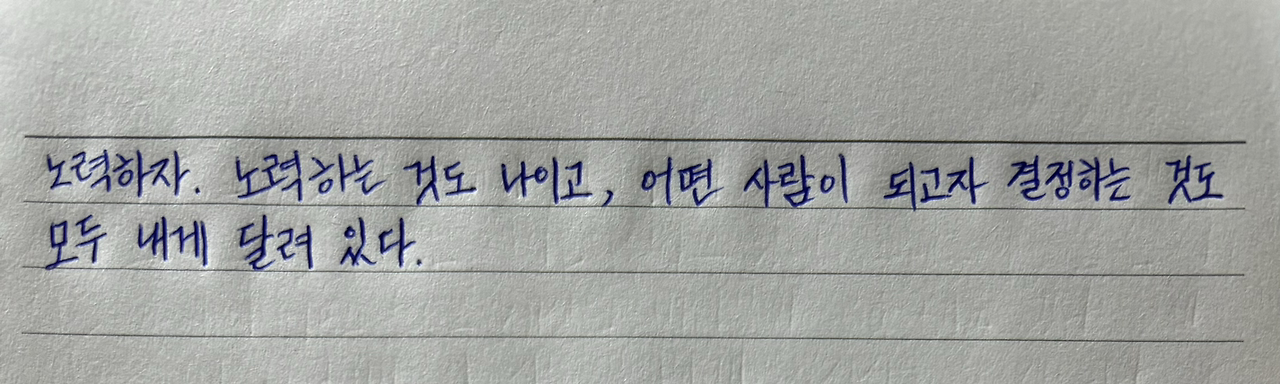 노력하자. 노력하는 것도 나이고, 어떤 사람이 되고자 결정하는 것도
모두 내게 달려 있다.